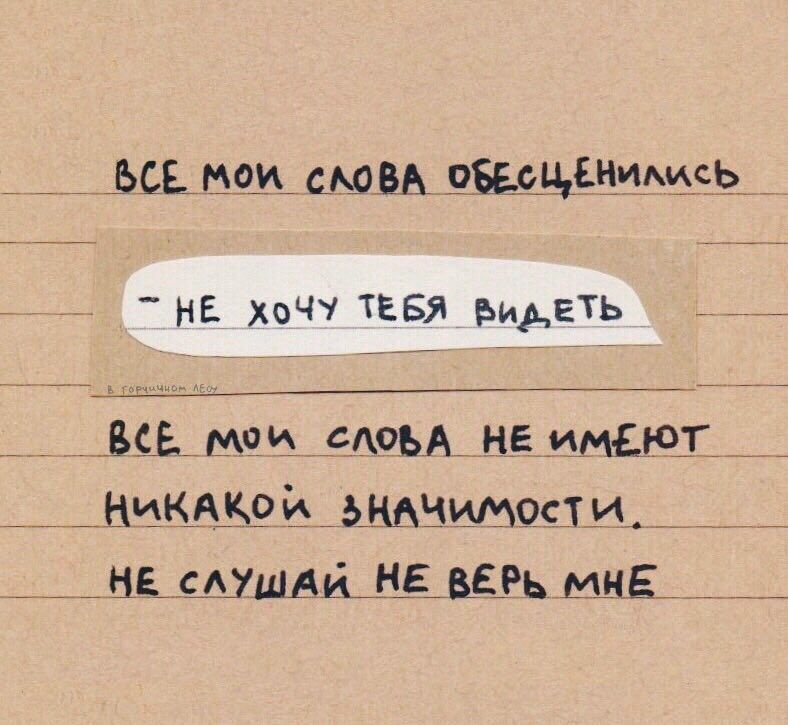 ВСЕ МОИ СЛОВА ОБЕСЦЕНИЛИСЬ
- НЕ ХОЧУ ТЕБЯ ВИДЕТЬ
В ГОРЧИЧНОМ ЛЕСУ
ВСЕ МОИ СЛОВА НЕ ИМЕЮТ
НИКАКОЙ ЗНАЧИМОСТИ.
НЕ СЛУШАЙ НЕ ВЕРЬ МНЕ